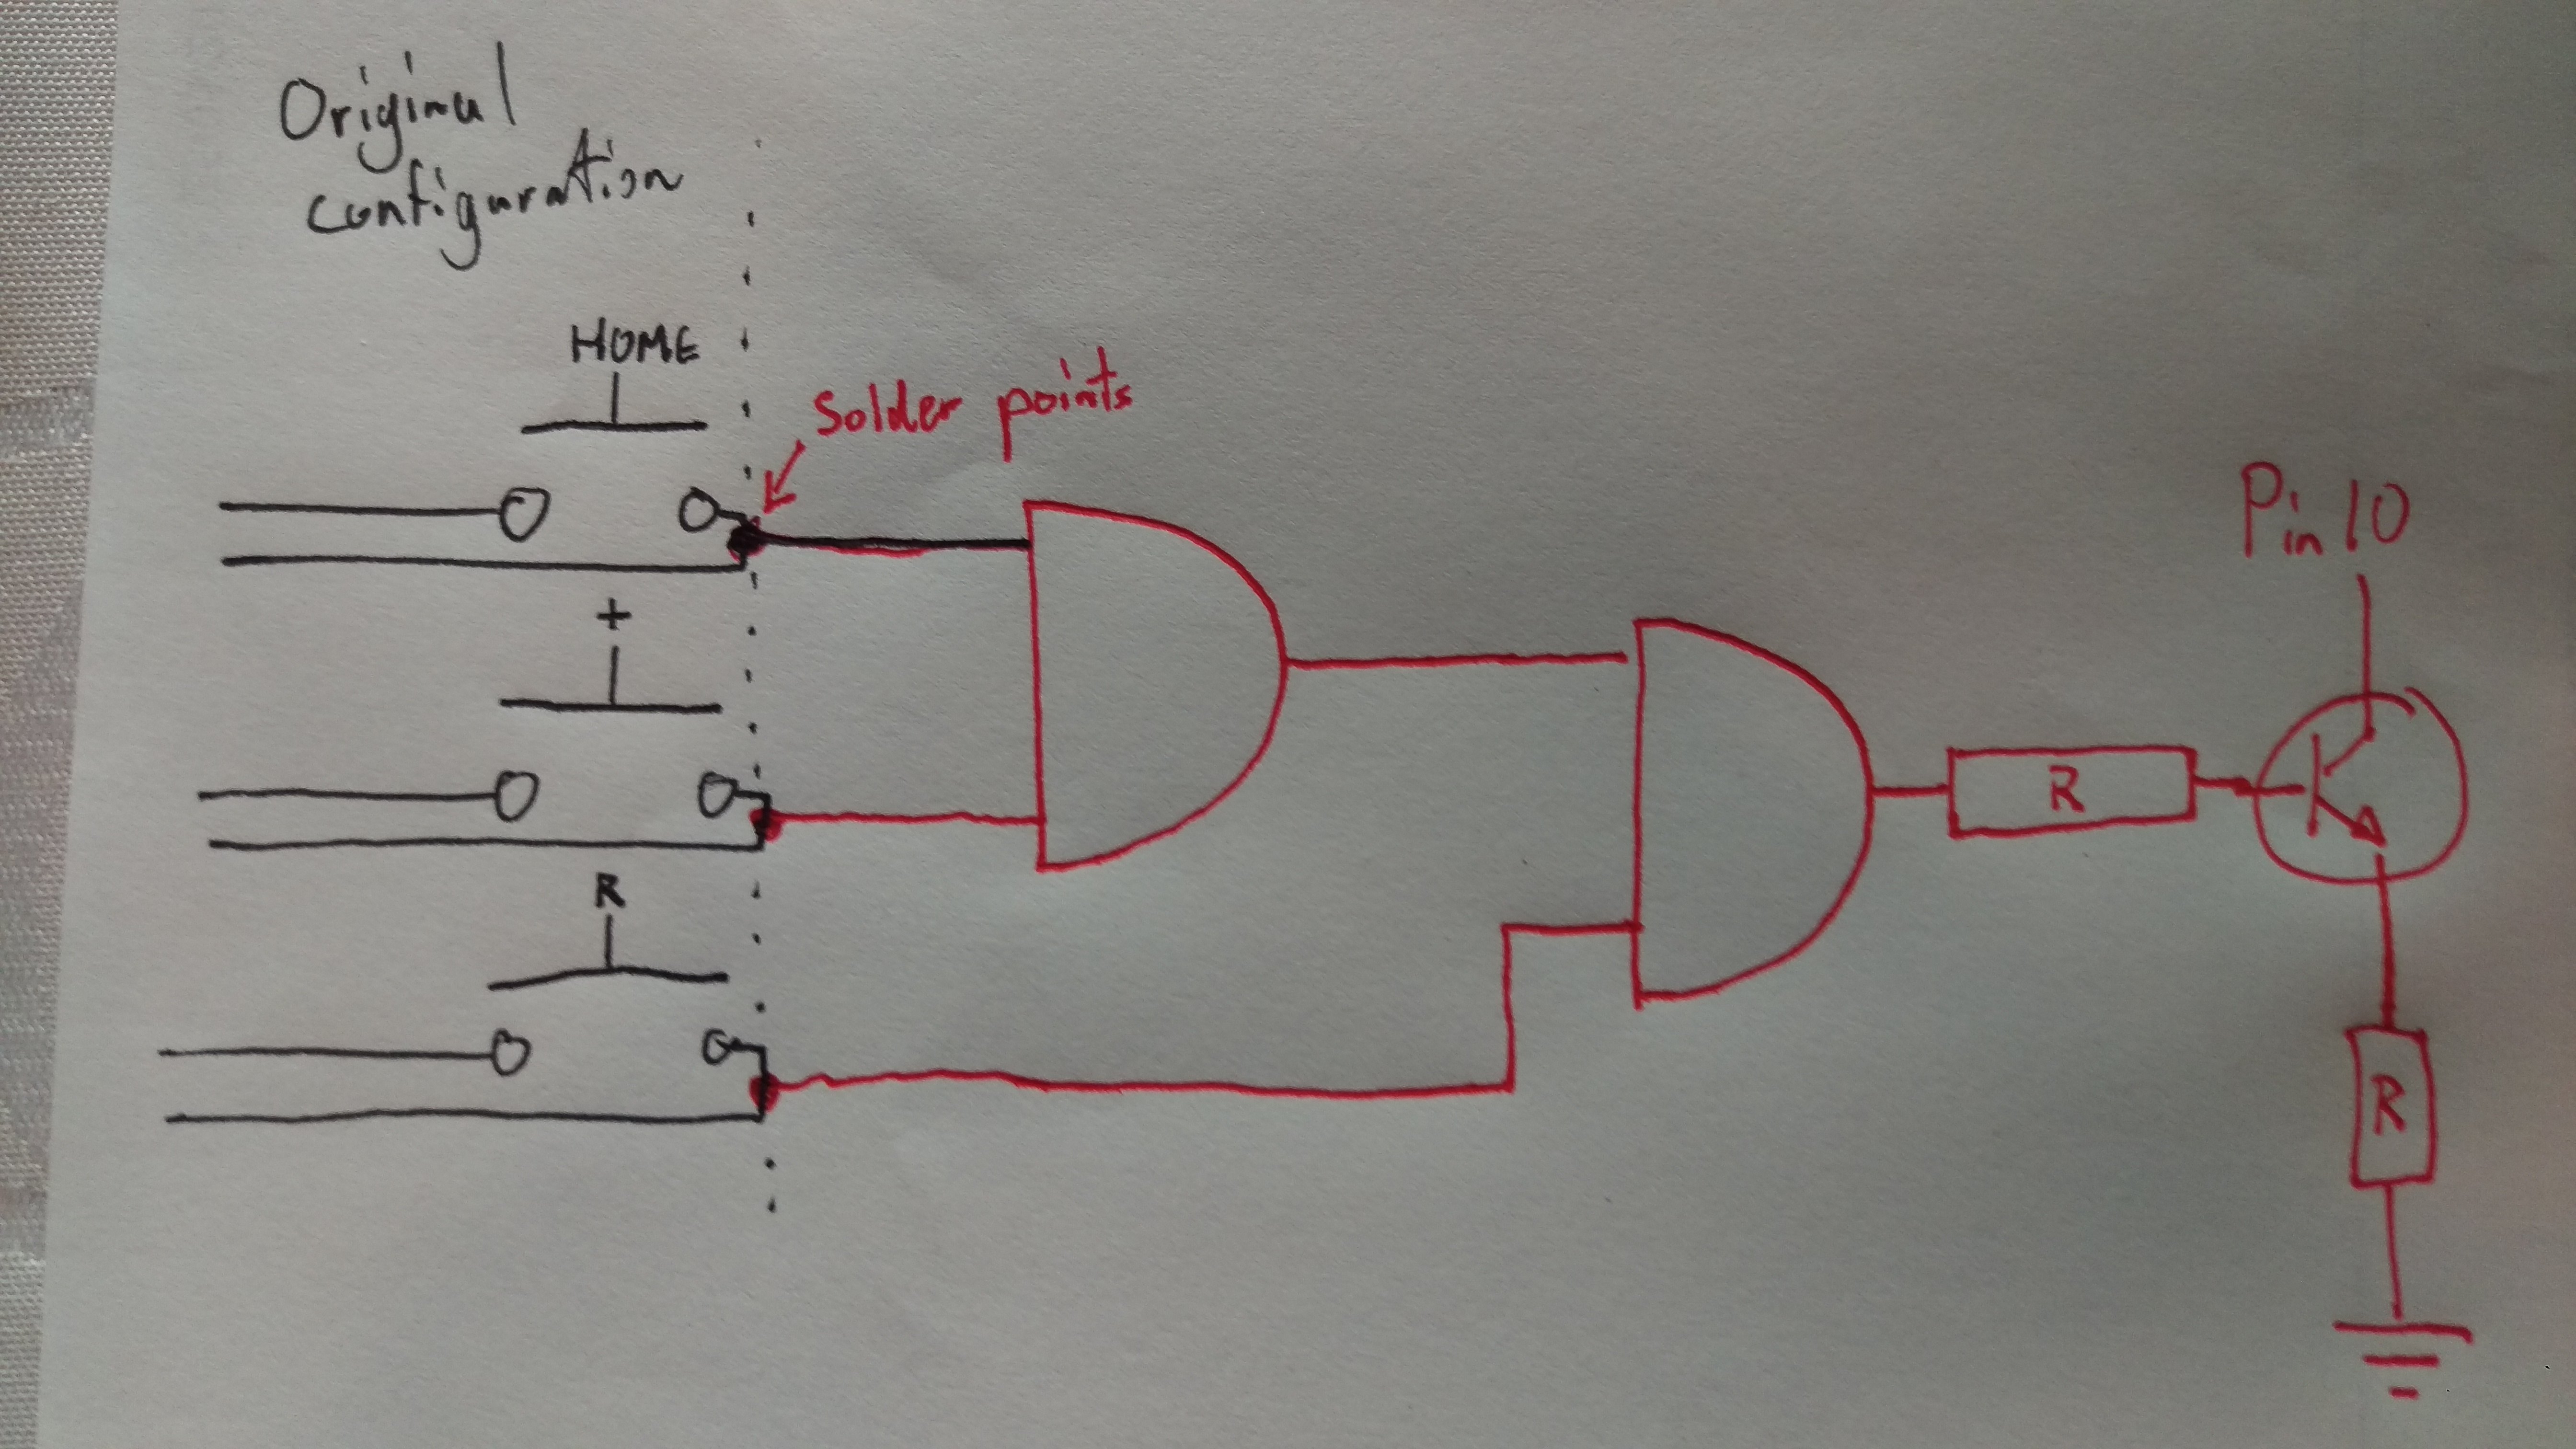 Original
configuration
HOME
Solder points
Pin 10
+
R
R
R